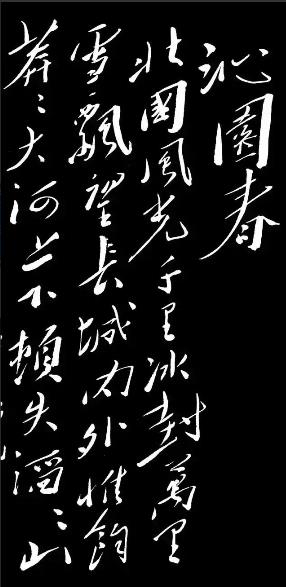 沁園春
北國風光千里冰封萬里
雪飄望長城内外惟餘
莽々大河上下頓失滔々山